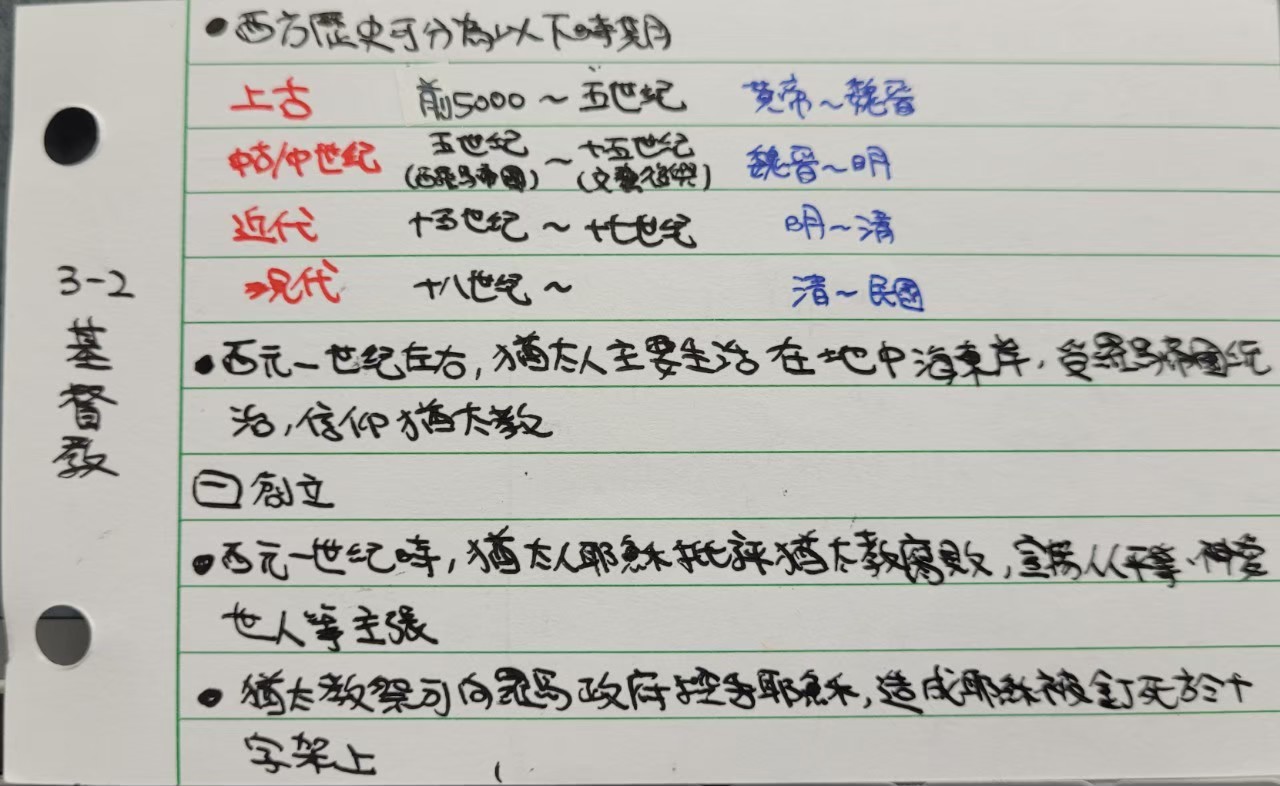 3-2
基督教
•西方歷史可分為以下時期
上古 前5000~五世紀 黃帝~魏晉
中古/中世紀 五世紀(西羅馬帝國)~十五世紀(文藝復興) 魏晉~明
近代 十五世紀~十七世紀 明~清
現代 十八世紀~ 清~民國
•西元一世紀左右,猶太人主要生活在地中海東岸,受羅馬帝國統
治,信仰猶太教
㊀創立
•西元一世紀時,猶太人耶穌批評猶太教腐敗,宣揚人人平等、神愛
世人等主張
•猶太教祭司向羅馬政府控告耶穌,造成耶穌被釘死於十
字架上